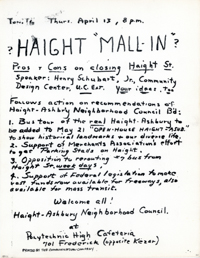 Tonite Thurs. April 13, 8 p.m.
? HAIGHT "MALL-IN" ?
Pros + Cons on closing Haight St.
Speaker: Henry Schubart, Jr., Community
Design Center, U.C. Ext. Your ideas, Too
Follows action on recommendations of
Haight-Ashbury Neighborhood Council Bd:
1. Bus tour of the real Haight-Ashbury to
be added to May 21 "OPEN-HOUSE HAIGHT-ASHB."
to show historical landmarks & our diverse life.
2. Support of Merchants Association's effort
to get Parking Stalls on Haight.
3. Opposition to rerouting #7 bus from
Haight St. week days.
4. Support of Federal legislation to make
vast funds now available for freeways, also
available for mass transit.
Welcome all!
Haight-Ashbury Neighborhood Council.
at
Polytechnic High Cafeteria
701 Frederick (opposite Kezar)
PRINTED BY THE COMMUNICATION COMPANY